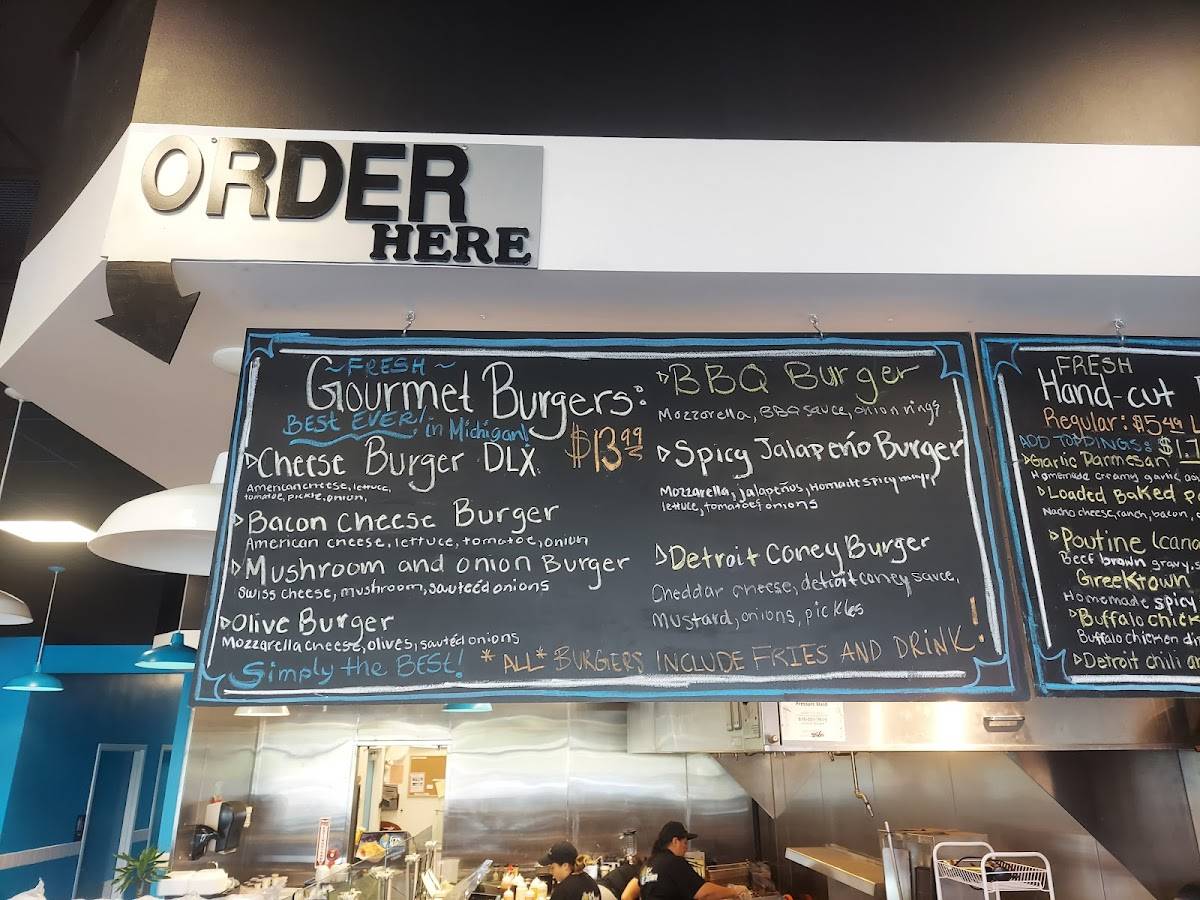 ORDER
HERE
~FRESH~
Gourmet Burgers:
BEST EVER! in Michigan!
$13.99
Cheese Burger DLX
American cheese, lettuce,
tomatoe, pickle, onion,
Bacon Cheese Burger
American cheese, lettuce, tomatoe, onion
Mushroom and onion Burger
Swiss cheese, mushroom, sauteéd onions
Olive Burger
Mozzarella cheese, olives, sautéd onions
Simply the BEST!
*ALL* BURGERS INCLUDE FRIES AND DRINK!
BBQ Burger
Mozzarella, BBQ sauce, onion rings
Spicy Jalapeño Burger
Mozzarella, jalapeños, Homade spicy
lettuce, tomatoe, onions
Detroit Coney Burger
Cheddar cheese, detroit coney sauce,
mustard, onions, pickles
FRESH
Hand-cut
Regular: $5.49
ADD TOPPINGS:
Garlic Parmesan
Homemade creamy garlic,
Loaded Baked
Nacho cheese, ranch, bacon,
Poutine
Beef brown gravy,
Greektown
Homemade spicy
Buffalo
Buffalo chicken
Detroit chili